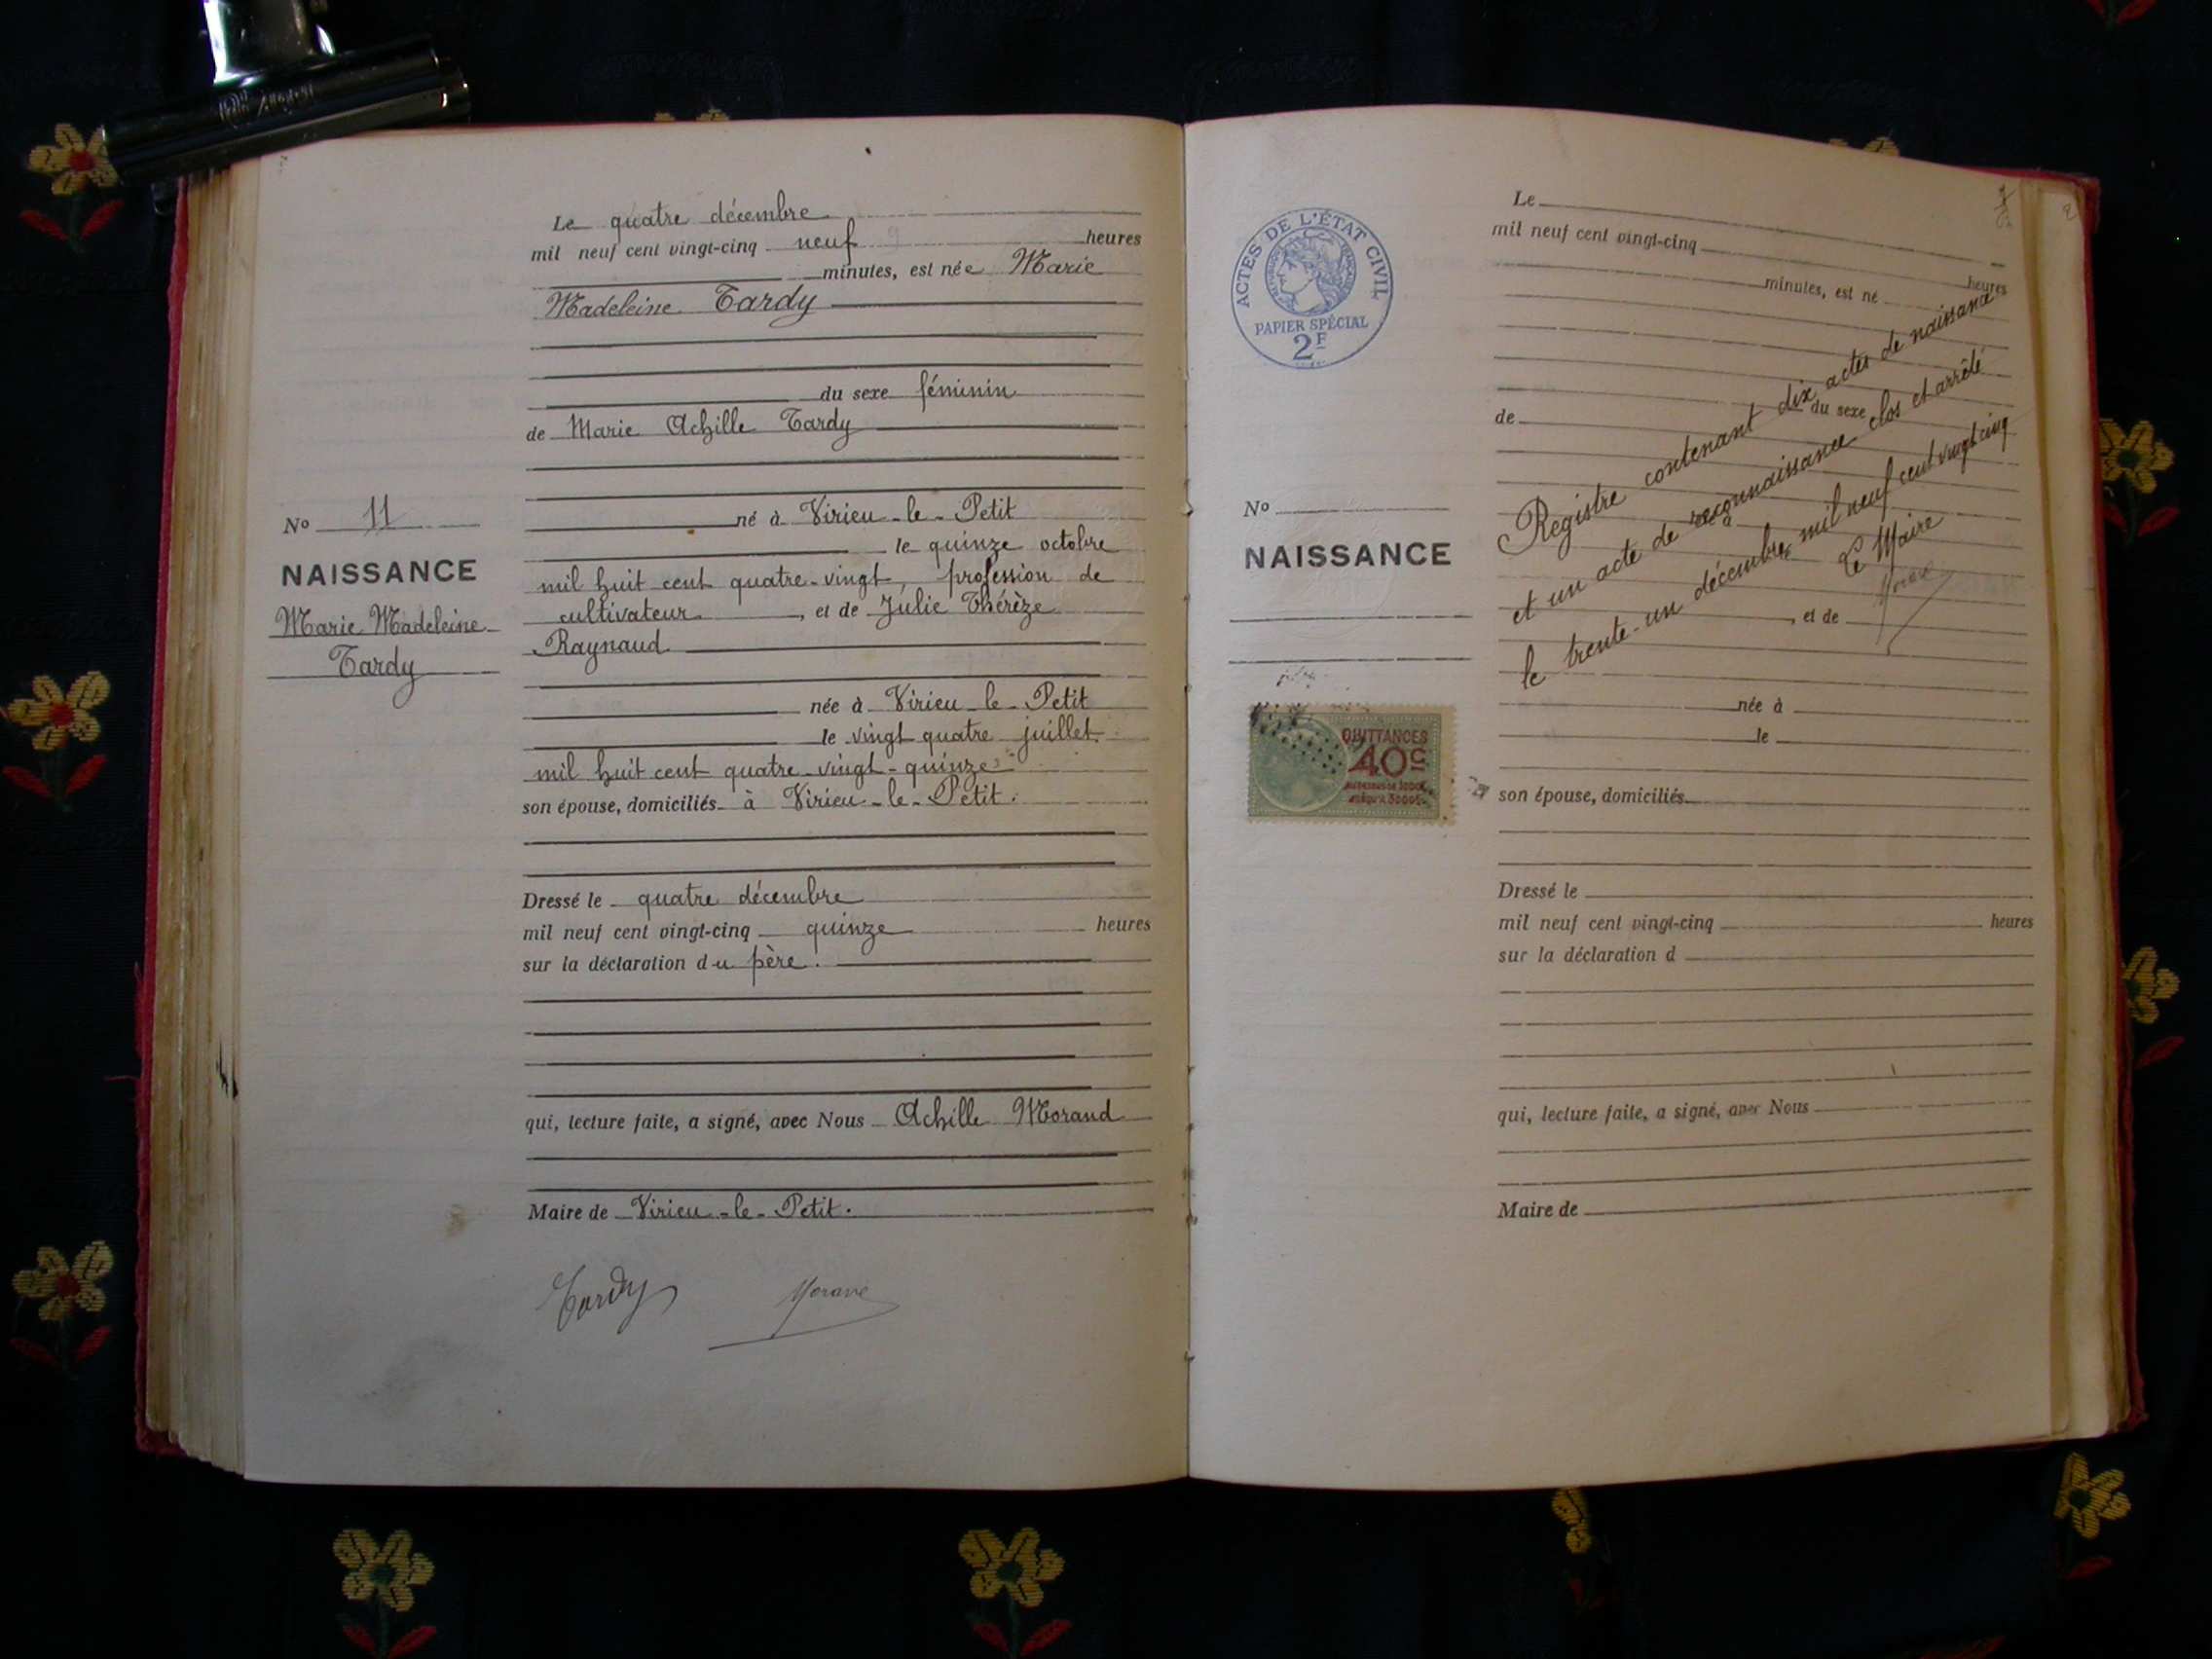 Le quatre décembre
mil neuf cent vingt-cinq neuf heures
minutes, est née Marie
Madeleine Tardy
du sexe féminin
de Marie Achille Tardy
né à Virieu-le-Petit
le quinze octobre
mil huit cent quatre-vingt, profession de
cultivateur, et de Julie Thérèze
Raynaud
née à Virieu-le-Petit
le vingt quatre juillet
mil huit cent quatre-vingt-quinze
son épouse, domiciliés à Virieu-le-Petit.
Dressé le quatre décembre
mil neuf cent vingt-cinq quinze heures
sur la déclaration du père.
qui, lecture faite, a signé, avec Nous Achille Morand
Maire de Virieu-le-Petit.
Tardy
No 11
NAISSANCE
Marie Madeleine
Tardy
ACTES DE L'ÉTAT CIVIL
PAPIER SPÉCIAL
2F
No
NAISSANCE
QUITTANCES
40c
Le
mil neuf cent vingt-cinq
heures
minutes, est né
du sexe
de
né à
le
, et de
née à
le
son épouse, domiciliés
Dressé le
mil neuf cent vingt-cinq heures
sur la déclaration d
qui, lecture faite, a signé, avec Nous
Maire de
Registre contenant dix actes de naissance
et un acte de reconnaissance clos et arrêté
le trente-un décembre mil neuf cent vingt cinq
Le Maire